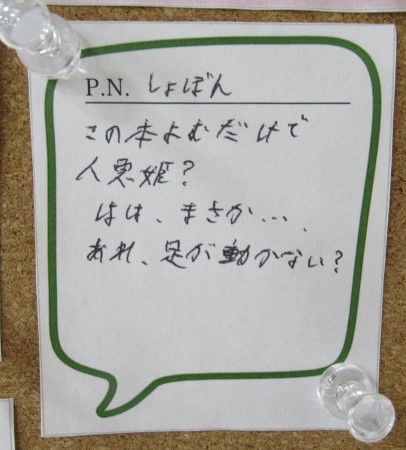 P.N. しょぼん
この本よむだけで
人悪姫?
はは、まさか…、
あれ、足が動かない?